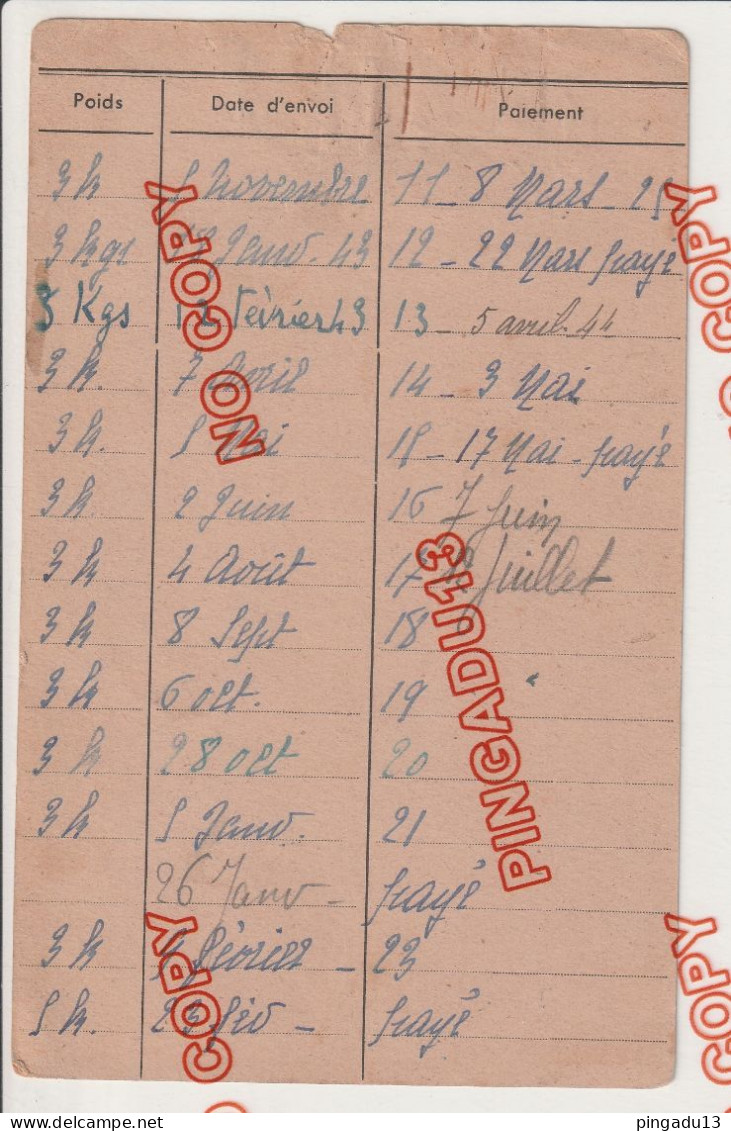 Poids Date d'envoi Paiement
3 k 5 Novembre 11 _ 8 Mars _
3 kgs Janv. 43 12 _ 22 Mars payé
3 Kgs 12 Février 43 13 _ 5 avril. 44
3 k. 7 Avril 14 _ 3 Mai
3 k. 5 Mai 15 _ 17 Mai _ payé
3 k. 2 Juin 16 7 Juin
3 k 4 Août 17 Juillet
3 k 8 Sept 18
3 k 6 oct. 19
3 k 28 oct 20
3 k 5 Janv. 21
26 Janv _ payé
3 k Février _ 23
5 k. 23 Fév _ payé
NO COPY
NO COPY
PINGADU13
COPY
COPY
pingadu13 delcampe.net